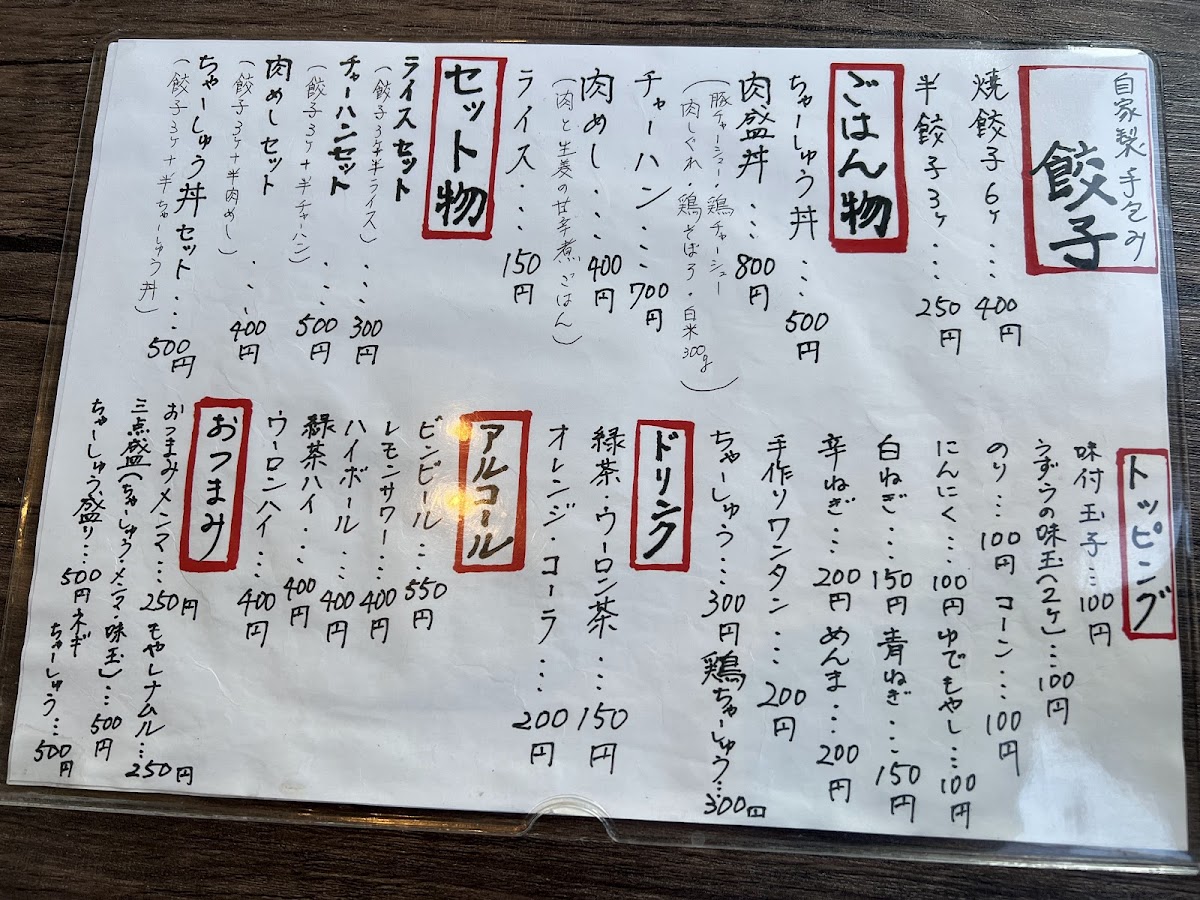 自家製 手包み
餃子
焼餃子6ヶ...400円
半餃子3ヶ...250円
ごはん物
ちゃーしゅう丼...500円
肉盛丼...800円
(豚チャーシュー・鶏チャーシュー
肉しぐれ・鶏そぼろ・白米300g)
チャーハン...700円
肉めし...400円
(肉と生姜の甘辛煮ごはん)
ライス...150円
セット物
ライスセット...300円
(餃子3ヶ+半ライス)
チャーハンセット...500円
(餃子3ヶ+半チャーハン)
肉めしセット...400円
(餃子3ヶ+半肉めし)
ちゃーしゅう丼セット...500円
(餃子3ヶ+半ちゃーしゅう丼)
トッピング
味付玉子...100円
うずらの味玉(2ヶ)...100円
のり...100円 コーン...100円
にんにく...100円 ゆでもやし...100円
白ねぎ...150円 青ねぎ...150円
辛ねぎ...200円 めんま...200円
手作りワンタン...200円
ちゃーしゅう...300円 鶏ちゃーしゅう...300円
ドリンク
緑茶・ウーロン茶...150円
オレンジ・コーラ...200円
アルコール
ビンビール...550円
レモンサワー...400円
ハイボール...400円
緑茶ハイ...400円
ウーロンハイ...400円
おつまみ
おつまみメンマ...250円 もやしナムル...250円
三点盛(ちゃーしゅう・メンマ・味玉)...500円
ちゃーしゅう盛り...500円 ネギちゃーしゅう...500円